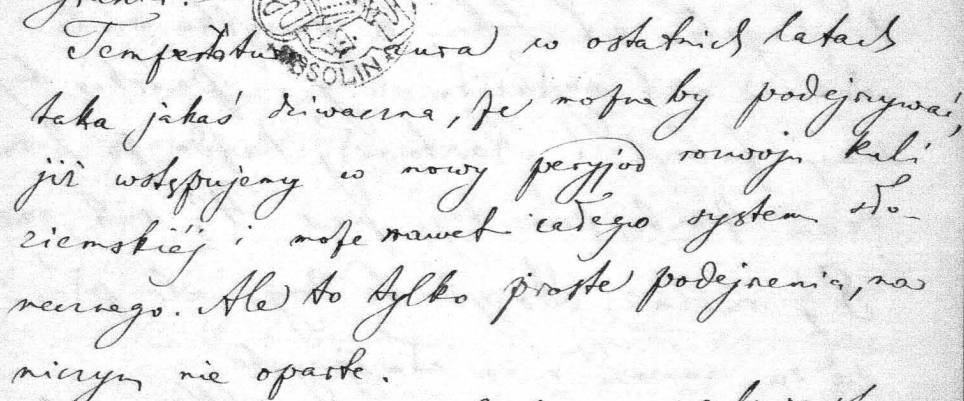 Temperatura
OSSOLIN
aura w ostatnich latach
taka jakaś dziwaczna, że możnaby podejrzywać,
iż wstępujemy w nowy peryjod rozwoju kuli
ziemskiéj i może nawet całego system sło-
necznego. Ale to tylko proste podejrzenia, na
niczym nie oparte.